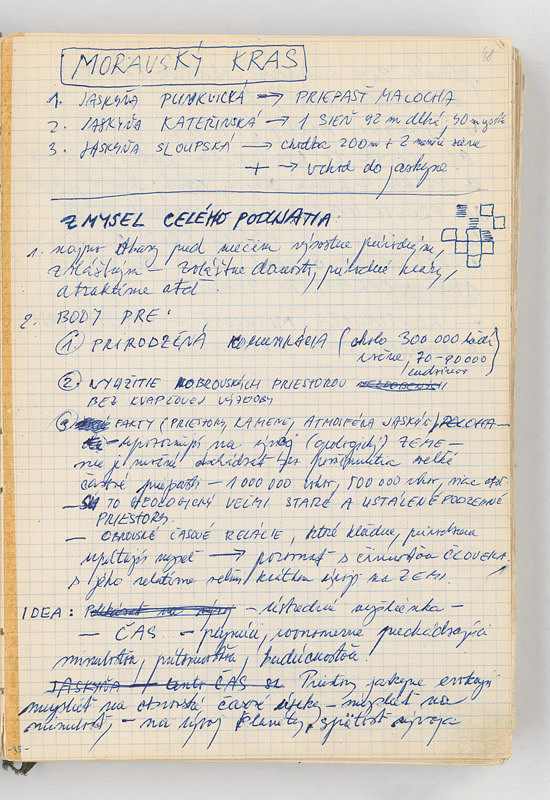 48
MORAVSKÝ KRAS
1. JASKYŇA PUNKVICKÁ → PRIEPASŤ MACOCHA
2. JASKYŇA KATEŘINSKÁ → 1 SIEŇ 92 m dlhá,
3. JASKYŇA SLOUPSKÁ → chodba 200m + 2 menšie siene
+ → vchod do jaskyne
ZMYSEL CELÉHO PODUJATIA:
1. najprv obrazy pred niečím výsostne prírodným,
zvláštnym – zvláštne danosti, prírodné krásy,
atraktívne atď.
2. BODY PRE:
1 PRIRODZENÁ KOMUNIKÁCIA (okolo 300 000 ľudí
ročne, 70-90000
cudzincov)
2. VYUŽITIE OBROVSKÝCH PRIESTOROV
BEZ KVAPĽOVEJ VÝZDOBY
3 FAKTY (PRIESTORY, KAMENE, ATMOSFÉRA JASKÝŇ)
– upozorňujú na vývoj (geologický) ZEME –
nie je nutné veľké
časové priepasti – 1 000 000 rokov, 500 000 rokov, viac atď
– SÚ TO GEOLOGICKY VEĽMI STARÉ A USTÁLENÉ PODZEMNÉ
PRIESTORY.
– OBROVSKÉ ČASOVÉ RELÁCIE, ktoré kladú
→ porovnať s činnosťou ČLOVEKA.
s jeho relatívne veľmi krátkym vývoji na ZEMI.
IDEA: – ústredná myšlienka –
– ČAS – plynúci, rovnomerne prechádzajúci
minulosťou, prítomnosťou, budúcnosťou.
JASKYŇA ČAS Priestory jaskyne evokujú
myslieť na obrovské časové úseky – myslieť na
minulosť, – na vývoj Planéty, spätosť vývoja
-35-